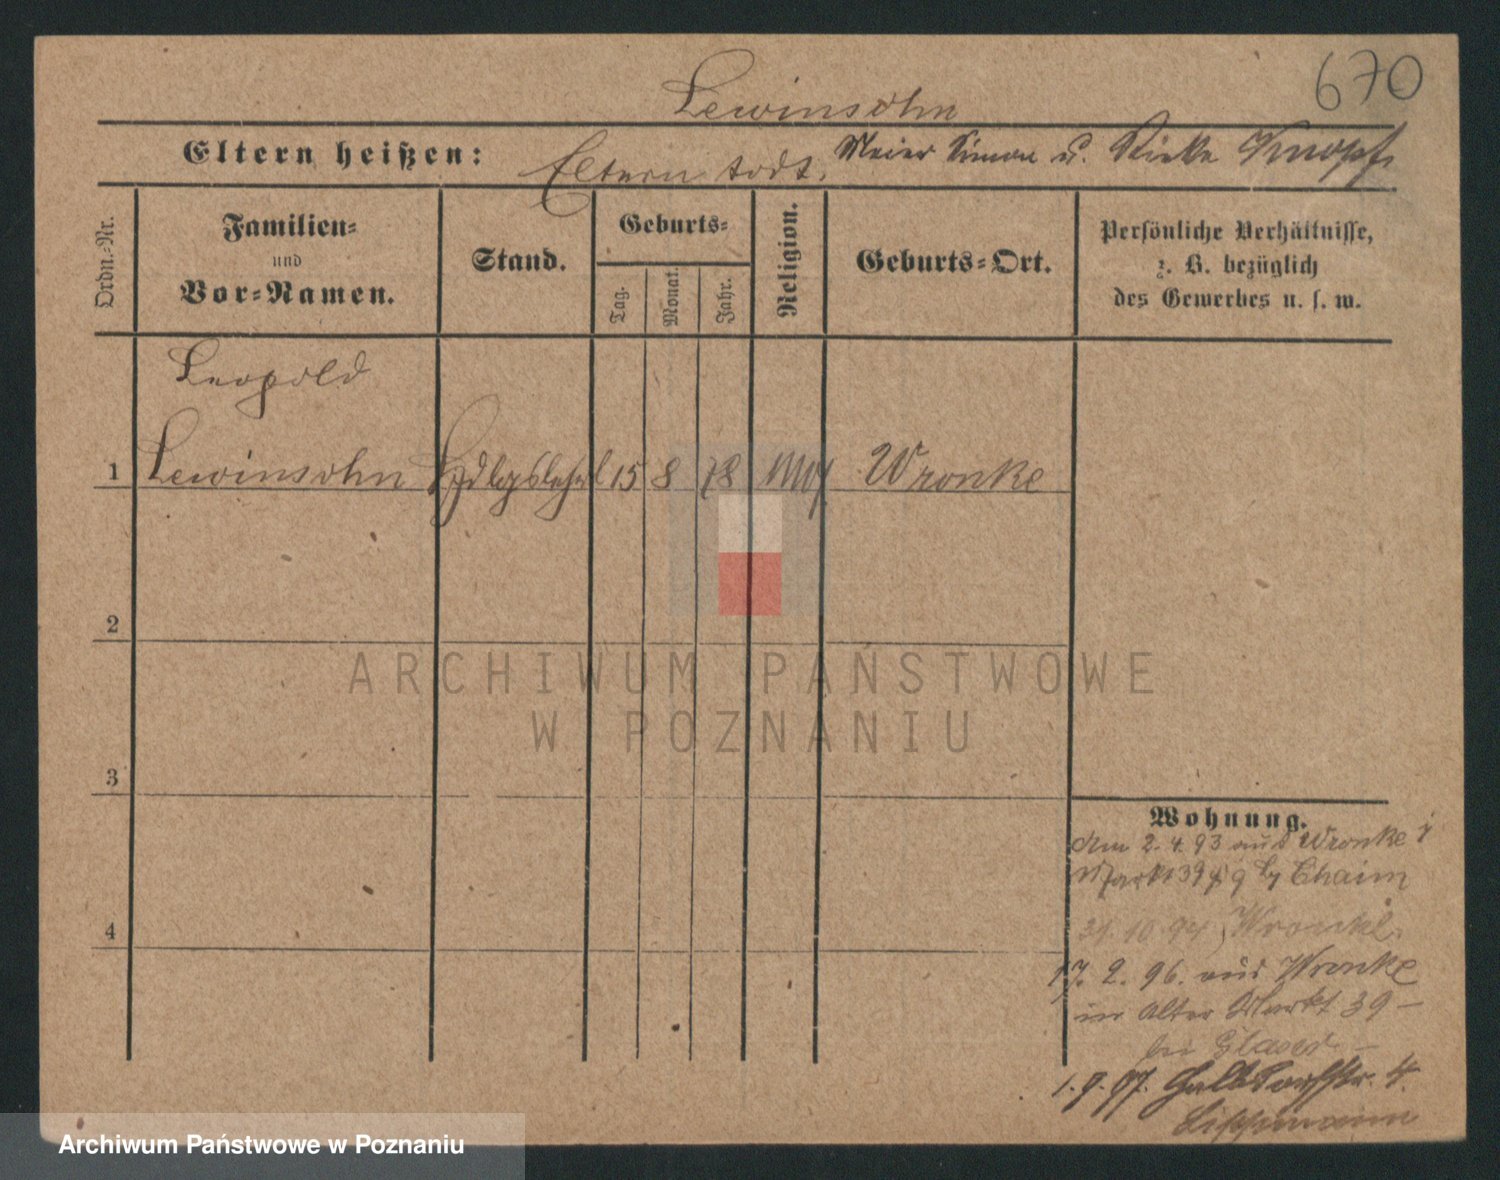 670
Lewinsohn
Eltern heißen: Eltern todt. Meier Simon u. Rieke Knopf
Ordn.-Nr.
Familien-
und
Vor-Namen.
Stand.
Geburts-
Tag.
Monat.
Jahr.
Religion.
Geburts-Ort.
Persönliche Verhältnisse,
z. B. bezüglich
des Gewerbes u. s. w.
Leopold
1 Lewinsohn 15 8 78 mos Wronke
2
3
4
ARCHIWUM PAŃSTWOWE
W POZNANIU
Wohnung.
Am 2.4.93 aus Wronke
Markt 39 Chaim
21.10.94 Wronke.
17. 2. 96. aus Wronke
in Alter Markt 39 —
bei Glaser —
1. 9. 97. Halbdorfstr. 4.
Lippmann
Archiwum Państwowe w Poznaniu